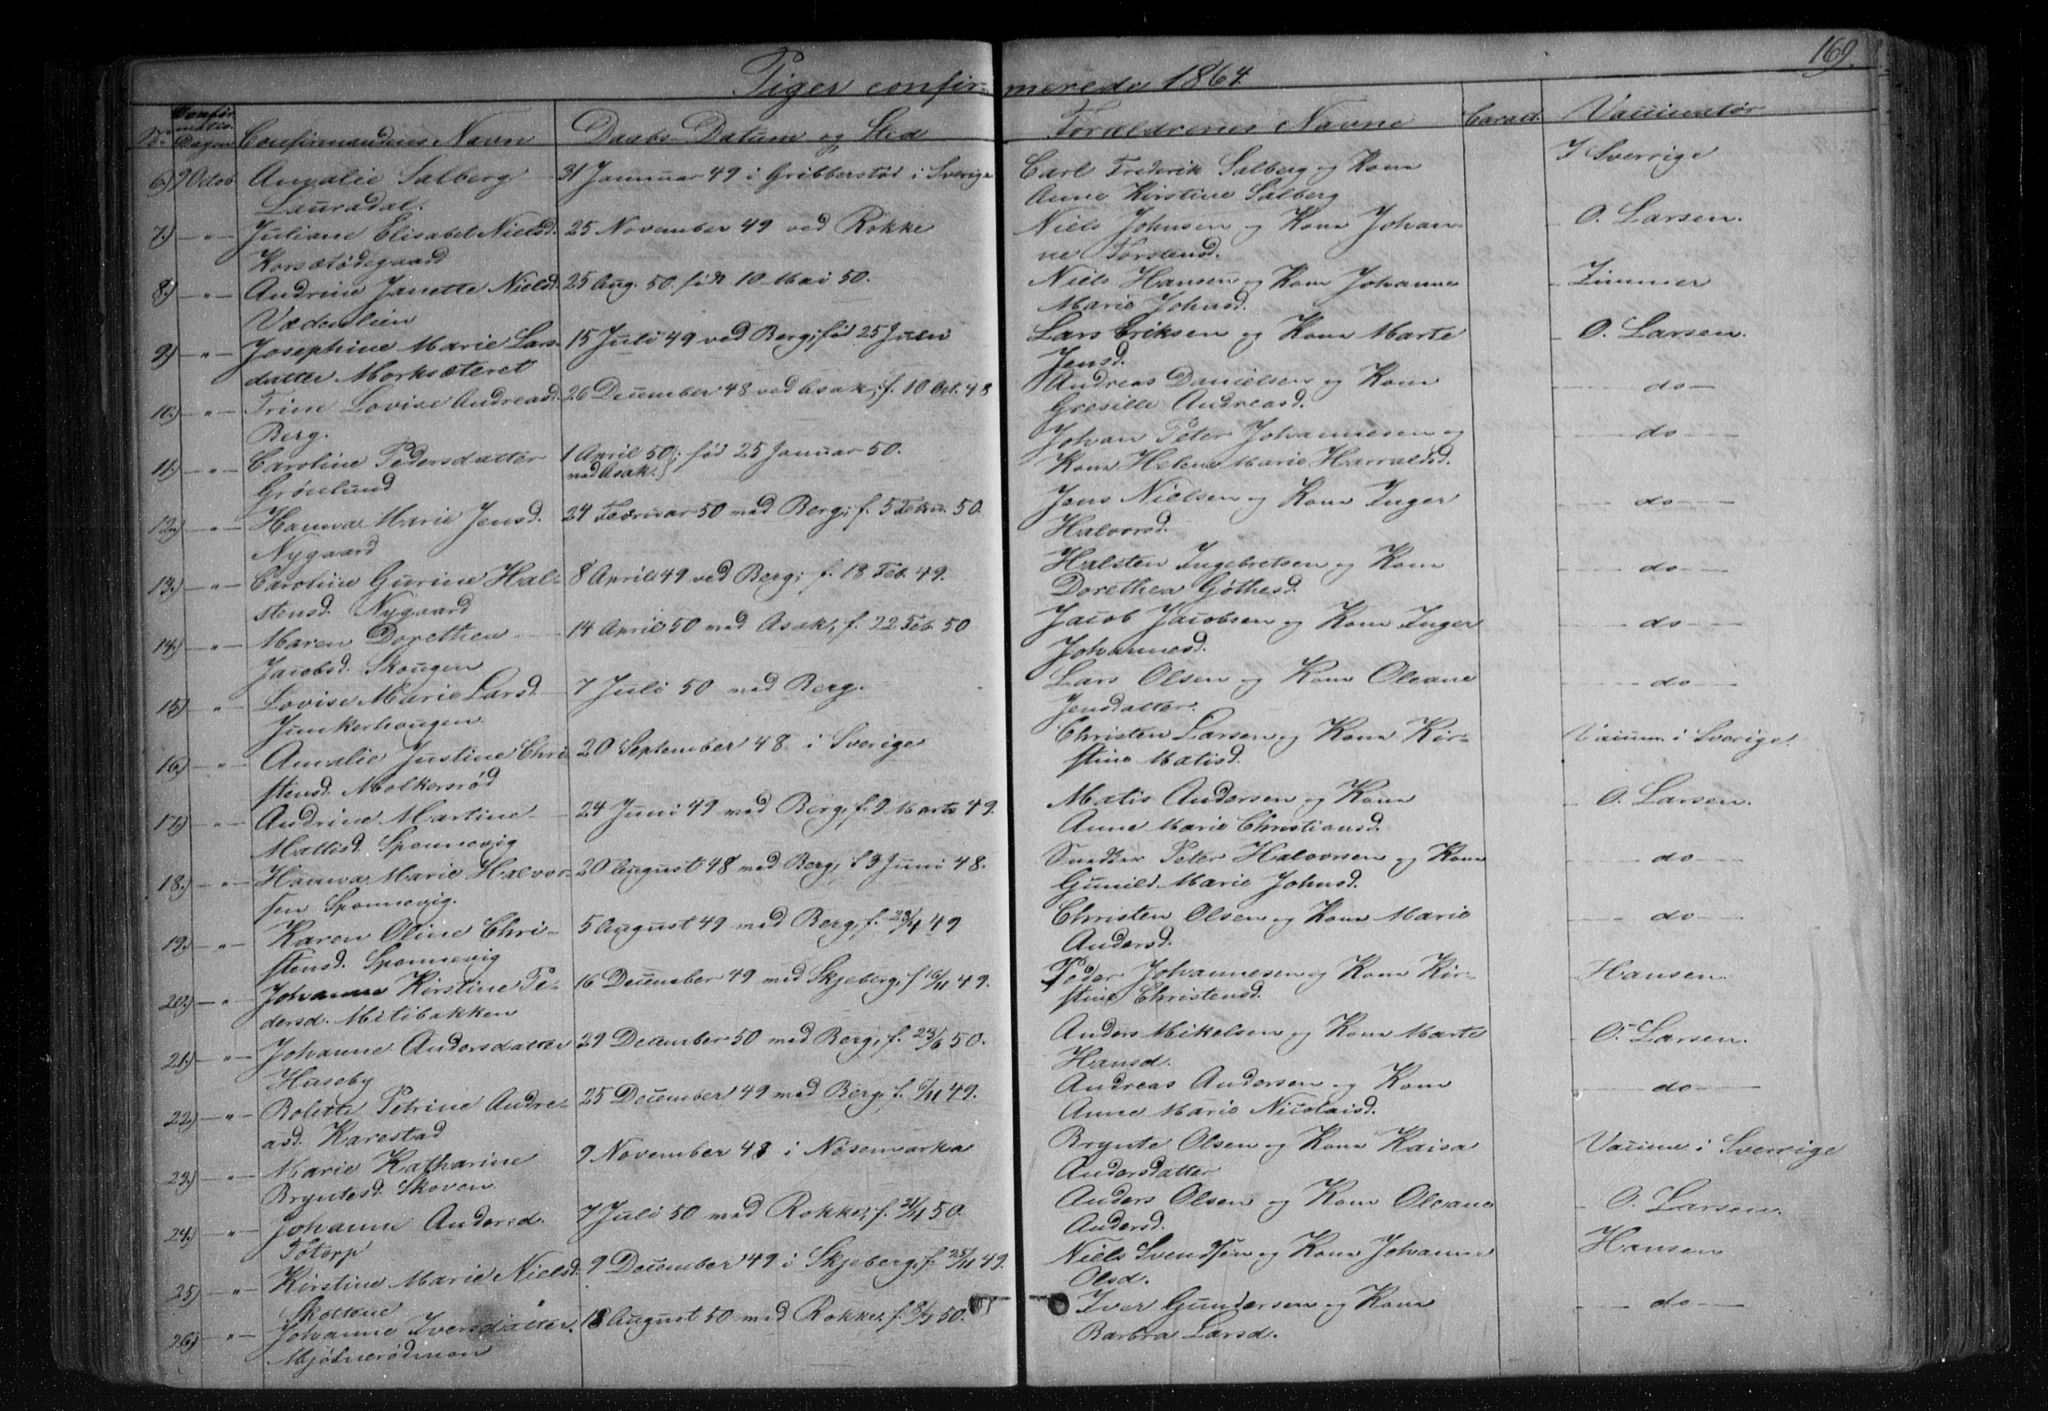 169.
Piger confirmerede 1864
N. Confirmatio. Dagen Confirmandens Navn Daabs Datum og Sted Forældrenes Navne Caract. Vaccinatør
6.) 9 Octob Amalie Salberg 31 Januar 49 i Gribberstød i Sverige Carl Frederik Salberg og Kone I Sverrige
Lauradal. Anne Kirstine Salberg
7.) -"- Juliane Elisabet Nielsd. 25 November 49 ved Rokke Niels Johnsen og Kone Johan- O. Larsen.
Korsetødegaard ne Torstensd.
8.) -"- Andrine Janette Nielsd 25 Aug. 50. født 10 Mai 50. Niels Hansen og Kone Johanne Zimmer
Vedenlien Marie Johnsd.
9) -"- Josephine Marie Lars- 15 Juli 49 ved Berg; fød 25 Juni Lars Eriksen og Kone Marte O. Larsen.
datter Morksæteret Jensd.
10.) -"- Trine Lovise Andreasd. 26 December 48 ved Asak; f. 10 Oct. 48 Andreas Danielsen og Kone do
Berg. Gresille Andreasd.
11.) -"- Caroline Pedersdatter 1 April 50; fød 25 Januar 50. Johan Peter Johannesen og do
Grønlund ved Asak. Kone Helene Marie Harraldsd.
12.) -"- Hanna Marie Jensd. 24 Februar 50 ved Berg; f. 5 Febru. 50. Jens Nielsen og Kone Inger do
Nygaard Halvorsd.
13.) -"- Caroline Gurine Hal- 8 April 49 ved Berg; f. 18 Feb. 49. Halsten Ingebretsen og Kone do
stensd. Nygaard Dorethea Gøthesd.
14.) -"- Maren Dorethea 14 April 50 ved Asak; f. 22 Feb. 50 Jacob Jacobsen og Kone Inger do
Jacobsd. Skougen Johannesd.
15.) -"- Lovise Marie Larsd 7 Juli 50 ved Berg. Lars Olsen og Kone Oleane do
Junkerhougen Jensdatter.
16.) -"- Amalie Justine Chri 20 September 48 i Sverige Christen Larsen og Kone Kir- Vaccin. i Sverige.
stensd. Molkersrød stine Matisd.
17.) -"- Andrine Martine 24 Juni 49 ved Berg, f. 9 Marts 49. Matis Andersen og Kone O. Larsen.
Mattisd. Sponnevig Anne Marie Christiansd.
18.) -"- Hanna Marie Halvor- 20 August 48 ved Berg, f 3 Juni 48. Snedker Peter Halvorsen og Kone do
sen Sponnevig. Gunild Marie Johnsd.
19.) -"- Karen Oline Chri- 5 August 49 ved Berg, f. 23/4 49 Christen Olsen og Kone Marie do
stensd. Sponnevig Andersd.
20.) -"- Johanne Kirstine Pe- 16 December 49 ved Skjeberg, f 16/11 49. Peder Johannesen og Kone Kir- Hansen
dersd. Mitibakken stine Christensd.
21.) -"- Johanne Andersdatter 29 December 50 ved Berg, f. 23/6 50. Anders Mikelsen og Kone Marte O. Larsen.
Huseby Hansd.
22.) -"- Bolette Petrine Andre- 25 December 49 ved Berg, f. 6/11 49. Andreas Andersen og Kone do
asd. Karestad Anne Marie Nicolaisd.
23.) -"- Marie Katharine 9 November 48 i Nøsemarka Brynte Olsen og Kone Kaisa Vaccine i Sverrige
Bryntesd. Skoven Andersdatter
24.) -"- Johanne Andersd. 7 Juli 50 ved Rokke, f. 21/4 50. Anders Olsen og Kone Oleane O. Larsen.
Totorp Andersd.
25.) -"- Kirstine Marie Nielsd. 9 December 49 i Skjeberg, f. 25/11 49. Niels Svendsen og Kone Johanne Hansen
Skottene Olsd.
26.) -"- Johanne Iversdatter. 18 August 50 ved Rokke, f. 8/7 50. Iver Gundersen og Kone do
Mjølnerødmon Barbra Larsd.